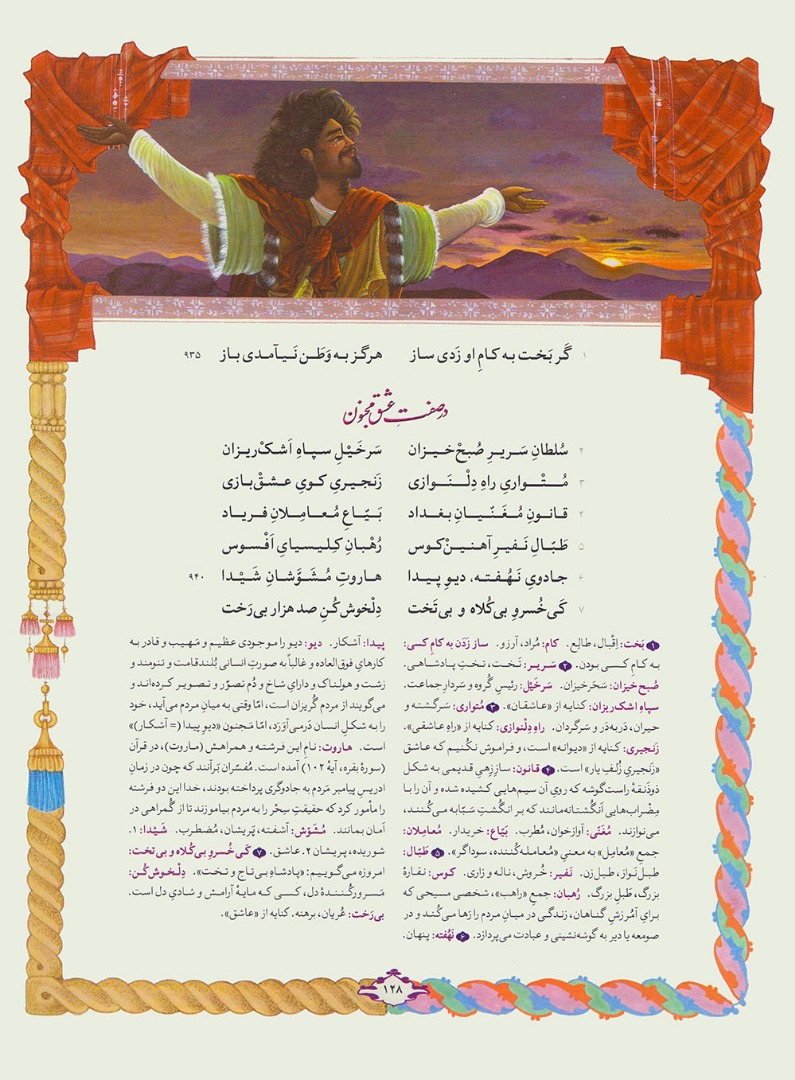 ۱ گَر بَخت به کامِ او زَدی ساز هرگز به وَطَن نَیآمدی باز ۹۳۵
در صفتِ عشقِ مجنون
۲ سُلطانِ سَریرِ صُبحْ‌خیزان سَرخَیْلِ سپاهِ اَشکْ‌ریزان
۳ مُتْواریِ راهِ دِلْنَوازی زَنجیریِ کویِ عشقْ‌بازی
۴ قانونِ مُغَنّیانِ بغداد بَیّاعِ مُعامِلانِ فریاد
۵ طَبّالِ نَفیرِ آهنینْ‌کوس رُهْبانِ کلیسیایِ اَفْسوس
۶ جادویِ نَهُفته، دیوِ پیدا هاروتِ مُشَوَّشانِ شَیْدا ۹۴۰
۷ کَی‌خُسروِ بی‌کُلاه و بی‌تَخت دِلْخوش‌کُنِ صد هزار بی‌رَخت
۱ بَخت: اِقبال، طالِع. کام: مُراد، آرزو. ساز زَدَن به کامِ کسی:
به کامِ کسی بودن. ۲ سَریر: تَخت، تختِ پادشاهی.
صُبح‌خیزان: سَحَرخیزان. سَرخَیْل: رئیسِ گُروه و سَردارِ جماعت.
سپاهِ اشک‌ریزان: کنایه از «عاشقان». ۳ مُتواری: سَرگشته و
حیران، دَربه‌دَر و سَرگردان. راهِ دِلْنوازی: کنایه از «راهِ عاشقی».
زَنجیری: کنایه از «دیوانه» است، و فراموش نکُنیم که عاشق
«زَنجیریِ زُلفِ یار» است. ۴ قانون: سازِ زِهیِ قدیمی به شکلِ
ذوذَنَقهٔ راست‌گوشه که رویِ آن سیم‌هایی کشیده شده و آن را با
مِضْراب‌هایی اَنگُشتانه‌مانند که بر انگُشتِ سَبّابه می‌کُنند،
می‌نوازند. مُغَنّی: آوازخوان، مُطرِب. بَیّاع: خریدار. مُعامِلان:
جمعِ «مُعامِل» به معنیِ «مُعامله‌کُننده، سوداگر». ۵ طَبّال:
طبل‌نَواز، طبل‌زن. نَفیر: خُروش، ناله و زاری. کوس: نقارهٔ
بزرگ، طَبلِ بزرگ. رُهبان: جمعِ «راهب»، شخصی مسیحی که
برایِ آمُرزشِ گناهان، زندگی در میانِ مردم را رَها می‌کُند و در
صومعه یا دیر به گوشه‌نشینی و عبادت می‌پردازد. ۶ نَهُفته: پنهان.
پیدا: آشکار. دیو: دیو را موجودی عظیم و مَهیب و قادر به
کارهایِ فوق‌العاده و غالباً به صورتِ انسانی بُلندقامت و تنومند و
زشت و هولناک و دارایِ شاخ و دُم تصوّر و تصویر کرده‌اند و
می‌گویند از مردم گُریزان است، امّا وقتی به میانِ مردم می‌آید، خود
را به شکلِ انسان دَرمی‌آوَرَد، امّا مَجنون «دیوِ پیدا (= آشکار)»
است. هاروت: نامِ این فرشته و همراهش (ماروت)، در قرآن
(سورهٔ بقره، آیهٔ ۱۰۲) آمده است. مُفسّران بَرآنند که چون در زمانِ
ادریسِ پیامبر مَردم به جادوگری پرداخته بودند، خدا این دو فرشته
را مأمور کرد که حقیقتِ سِحْر را به مردم بیاموزند تا از گُمراهی در
اَمان بمانند. مُشَوّش: آشفته، پَریشان، مُضطرب. شَیْدا: ۱.
شوریده، پریشان ۲. عاشق. ۷ کَی‌خُسروِ بی‌کُلاه و بی‌تخت:
امروزه می‌گوییم: «پادشاهِ بی‌تاج و تخت». دِلْخوش‌کُن:
مَسرورکُننده دل، کسی که مایهٔ آرامش و شادیِ دل است.
بی‌رَخت: عُریان، برهنه. کنایه از «عاشق».
۱۲۸